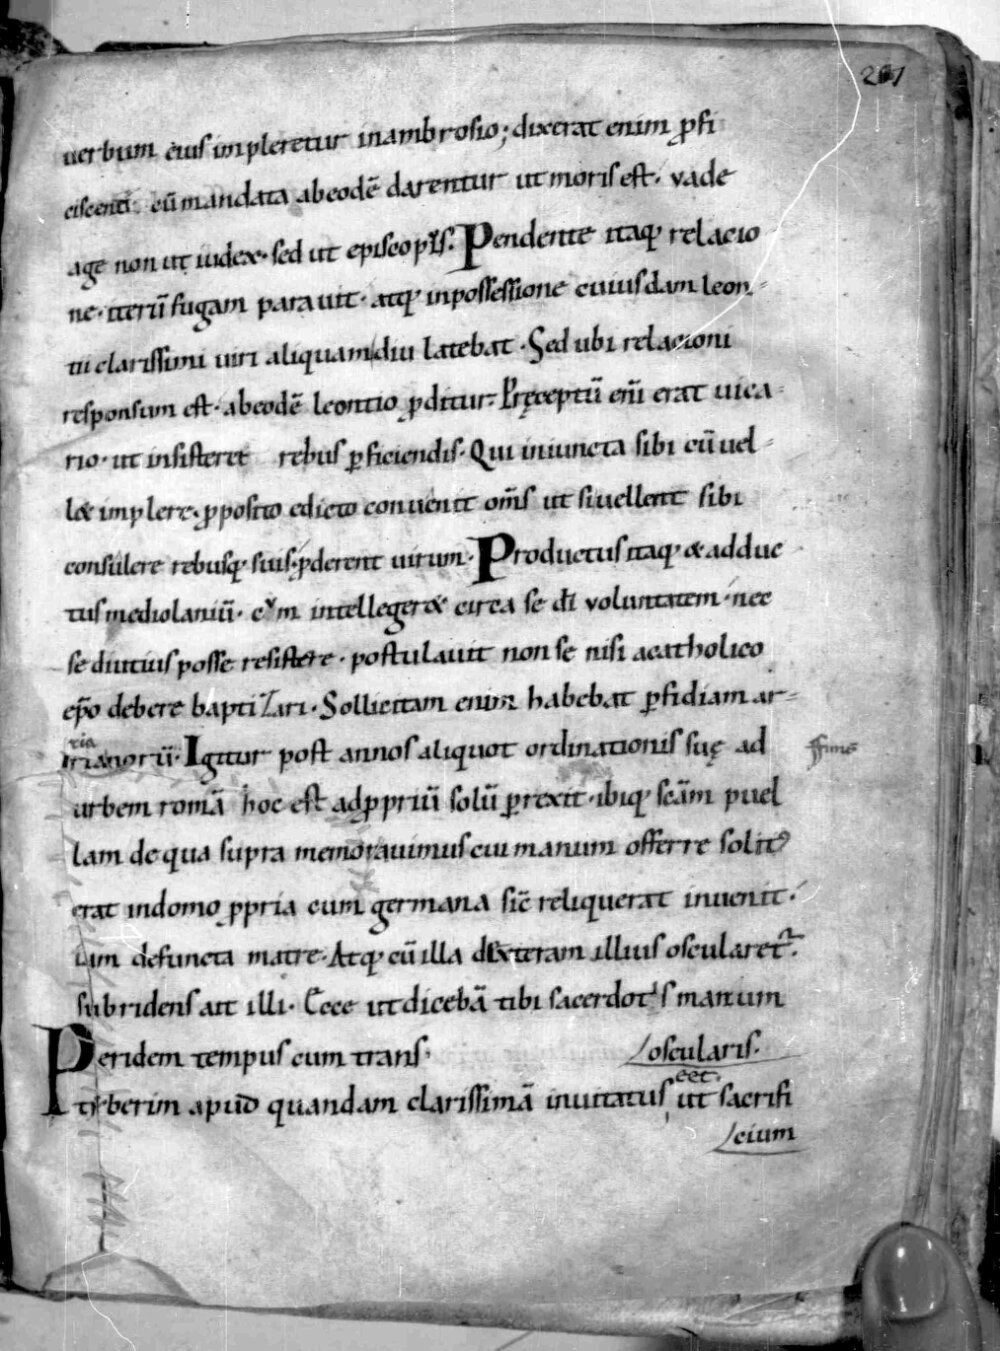 201
uerbum eius impleretur inambrosio; dixerat enim ꝓfi
ciscenti. cū mandata abeodē darentur ut moris est. vade
age non ut iudex. sed ut episcopus. Pendente itaq; relacio
ne. iterū fugam parauit. atq; inpossessione cuiusdam leon-
tii clarissimi uiri aliquamdiu latebat. Sed ubi relacioni
responsum est. abeodē leontio ꝓditur. Pręceptū eni erat uica-
rio. ut insisteret rebus ꝑficiendis. Qui iniuncta sibi cū uel-
l& implere. ꝓposito edicto conuenit om̄s ut si uellent sibi
consulere rebusq; suis. ꝓderent uirum. Productus itaq; & adduc
tus mediolaniū. cum intelleger& circa se dī voluntatem. nec
se diutius posse resistere. postulauit non se nisi acatholico
ep̄o debere baptizari. Sollicitam enim habebat ꝑfidiam ar-
ria
rianorū. Igitur post annos aliquot ordinationis suę ad
urbem romā hoc est adꝓpriū solū ꝑrexit. ibiq; sc̄am puel
lam de qua supra memorauimus cui manum offerre solit9
erat indomo ꝓpria cum germana sic̄ reliquerat inuenit.
iam defuncta matre. Atq; cū illa dexteram illius oscularet᷑.
subridens ait illi. Ecce ut dicebā tibi sacerdotis manum
oscularis.
Peridem tempus cum trans
eet.
tyberim apud quandam clarissimā inuitatus ut sacrifi
cium